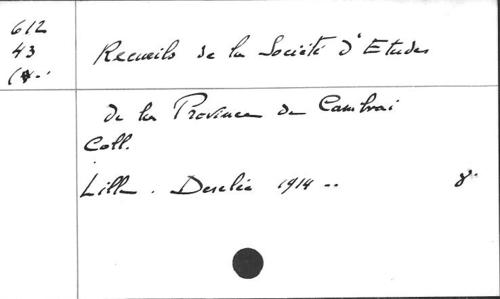 612
43
Recueils de la Société d'Etudes
de la Province de Cambrai
Coll.
Lille. Desclée 1914 .. 8°